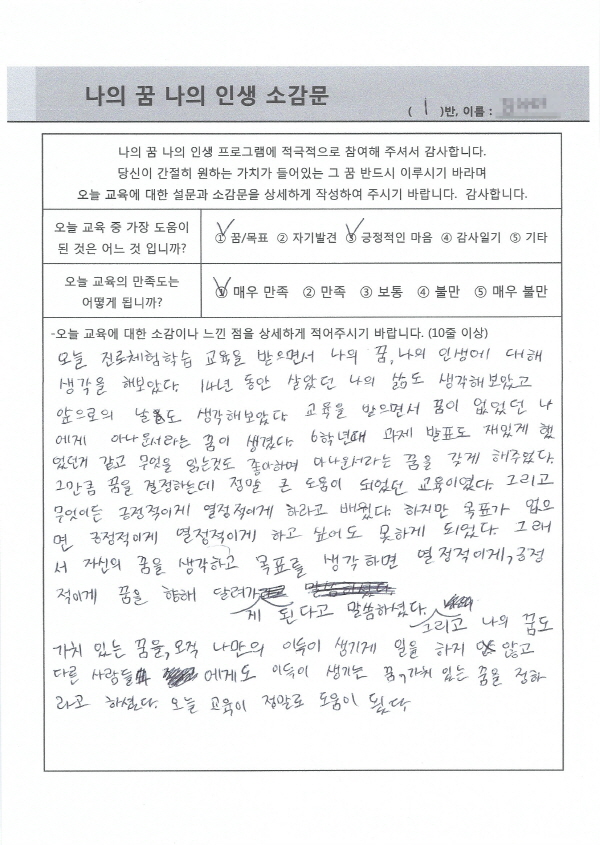 나의 꿈 나의 인생 소감문
( 1 )반, 이름 :
나의 꿈 나의 인생 프로그램에 적극적으로 참여해 주셔서 감사합니다.
당신이 간절히 원하는 가치가 들어있는 그 꿈 반드시 이루시기 바라며
오늘 교육에 대한 설문과 소감문을 상세하게 작성하여 주시기 바랍니다. 감사합니다.
오늘 교육 중 가장 도움이
된 것은 어느 것 입니까?
① 꿈/목표 ② 자기발견 ③ 긍정적인 마음 ④ 감사일기 ⑤ 기타
오늘 교육의 만족도는
어떻게 됩니까?
① 매우 만족 ② 만족 ③ 보통 ④ 불만 ⑤ 매우 불만
-오늘 교육에 대한 소감이나 느낀 점을 상세하게 적어주시기 바랍니다. (10줄 이상)
오늘 진로체험학습 교육을 받으면서 나의 꿈, 나의 인생에 대해
생각을 해보았다. 14년 동안 살았던 나의 삶도 생각해보았고
앞으로의 날도 생각해보았다. 교육을 받으면서 꿈이 없었던 나
에게 아나운서라는 꿈이 생겼다. 6학년때 과제 발표도 재밌게 했
었던거 같고 무엇을 읽는것도 좋아하며 아나운서라는 꿈을 갖게 해주었다.
그만큼 꿈을 결정하는데 정말 큰 도움이 되었던 교육이였다. 그리고
무엇이든 긍정적이게 열정적이게 하라고 배웠다. 하지만 목표가 없으
면 긍정적이게 열정적이게 하고 싶어도 못하게 되었다. 그래
서 자신의 꿈을 생각하고 목표를 생각하면 열정적이게, 긍정
적이게 꿈을 향해 달려가
게 된다고 말씀하셨다. 그리고 나의 꿈도
가치 있는 꿈을, 오직 나만의 이득이 생기게 일을 하지 않고
다른 사람들에게도 이득이 생기는 꿈, 가치 있는 꿈을 정하
라고 하셨다. 오늘 교육이 정말로 도움이 됬다.